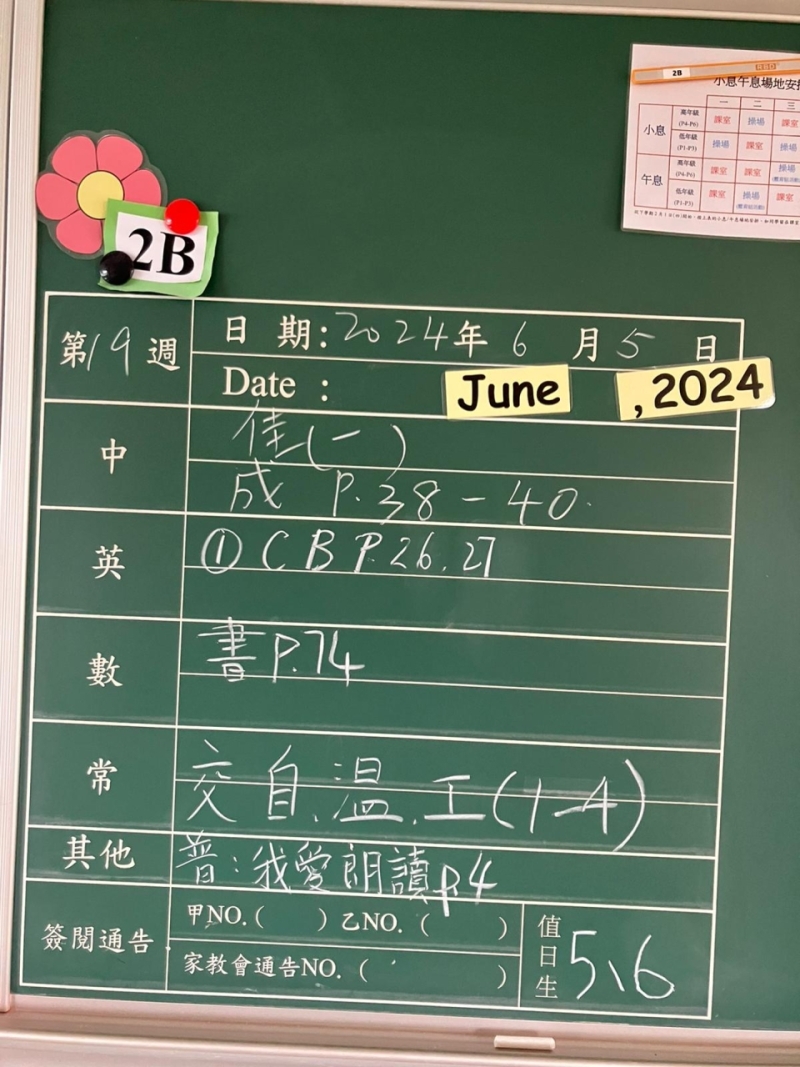 2B
RBD
小息午息場地安排
一 二 三
小息 高年級 (P4-P6) 課室 操場 課室
低年級 (P1-P3) 操場 課室 操場
午息 高年級 (P4-P6) 課室 課室 操場
低年級 (P1-P3) 課室 操場 課室
2B
第19週 日期:2024年6月5日
Date : June , 2024
中 佳(一)
成 P.38-40.
英 ①CB P.26.27
數 書P.74
常 交自、溫、工(1-4)
其他 普:我愛朗讀p.4
簽閱通告 甲NO.( ) 乙NO.( )
家教會通告NO.( )
值日生 5、6